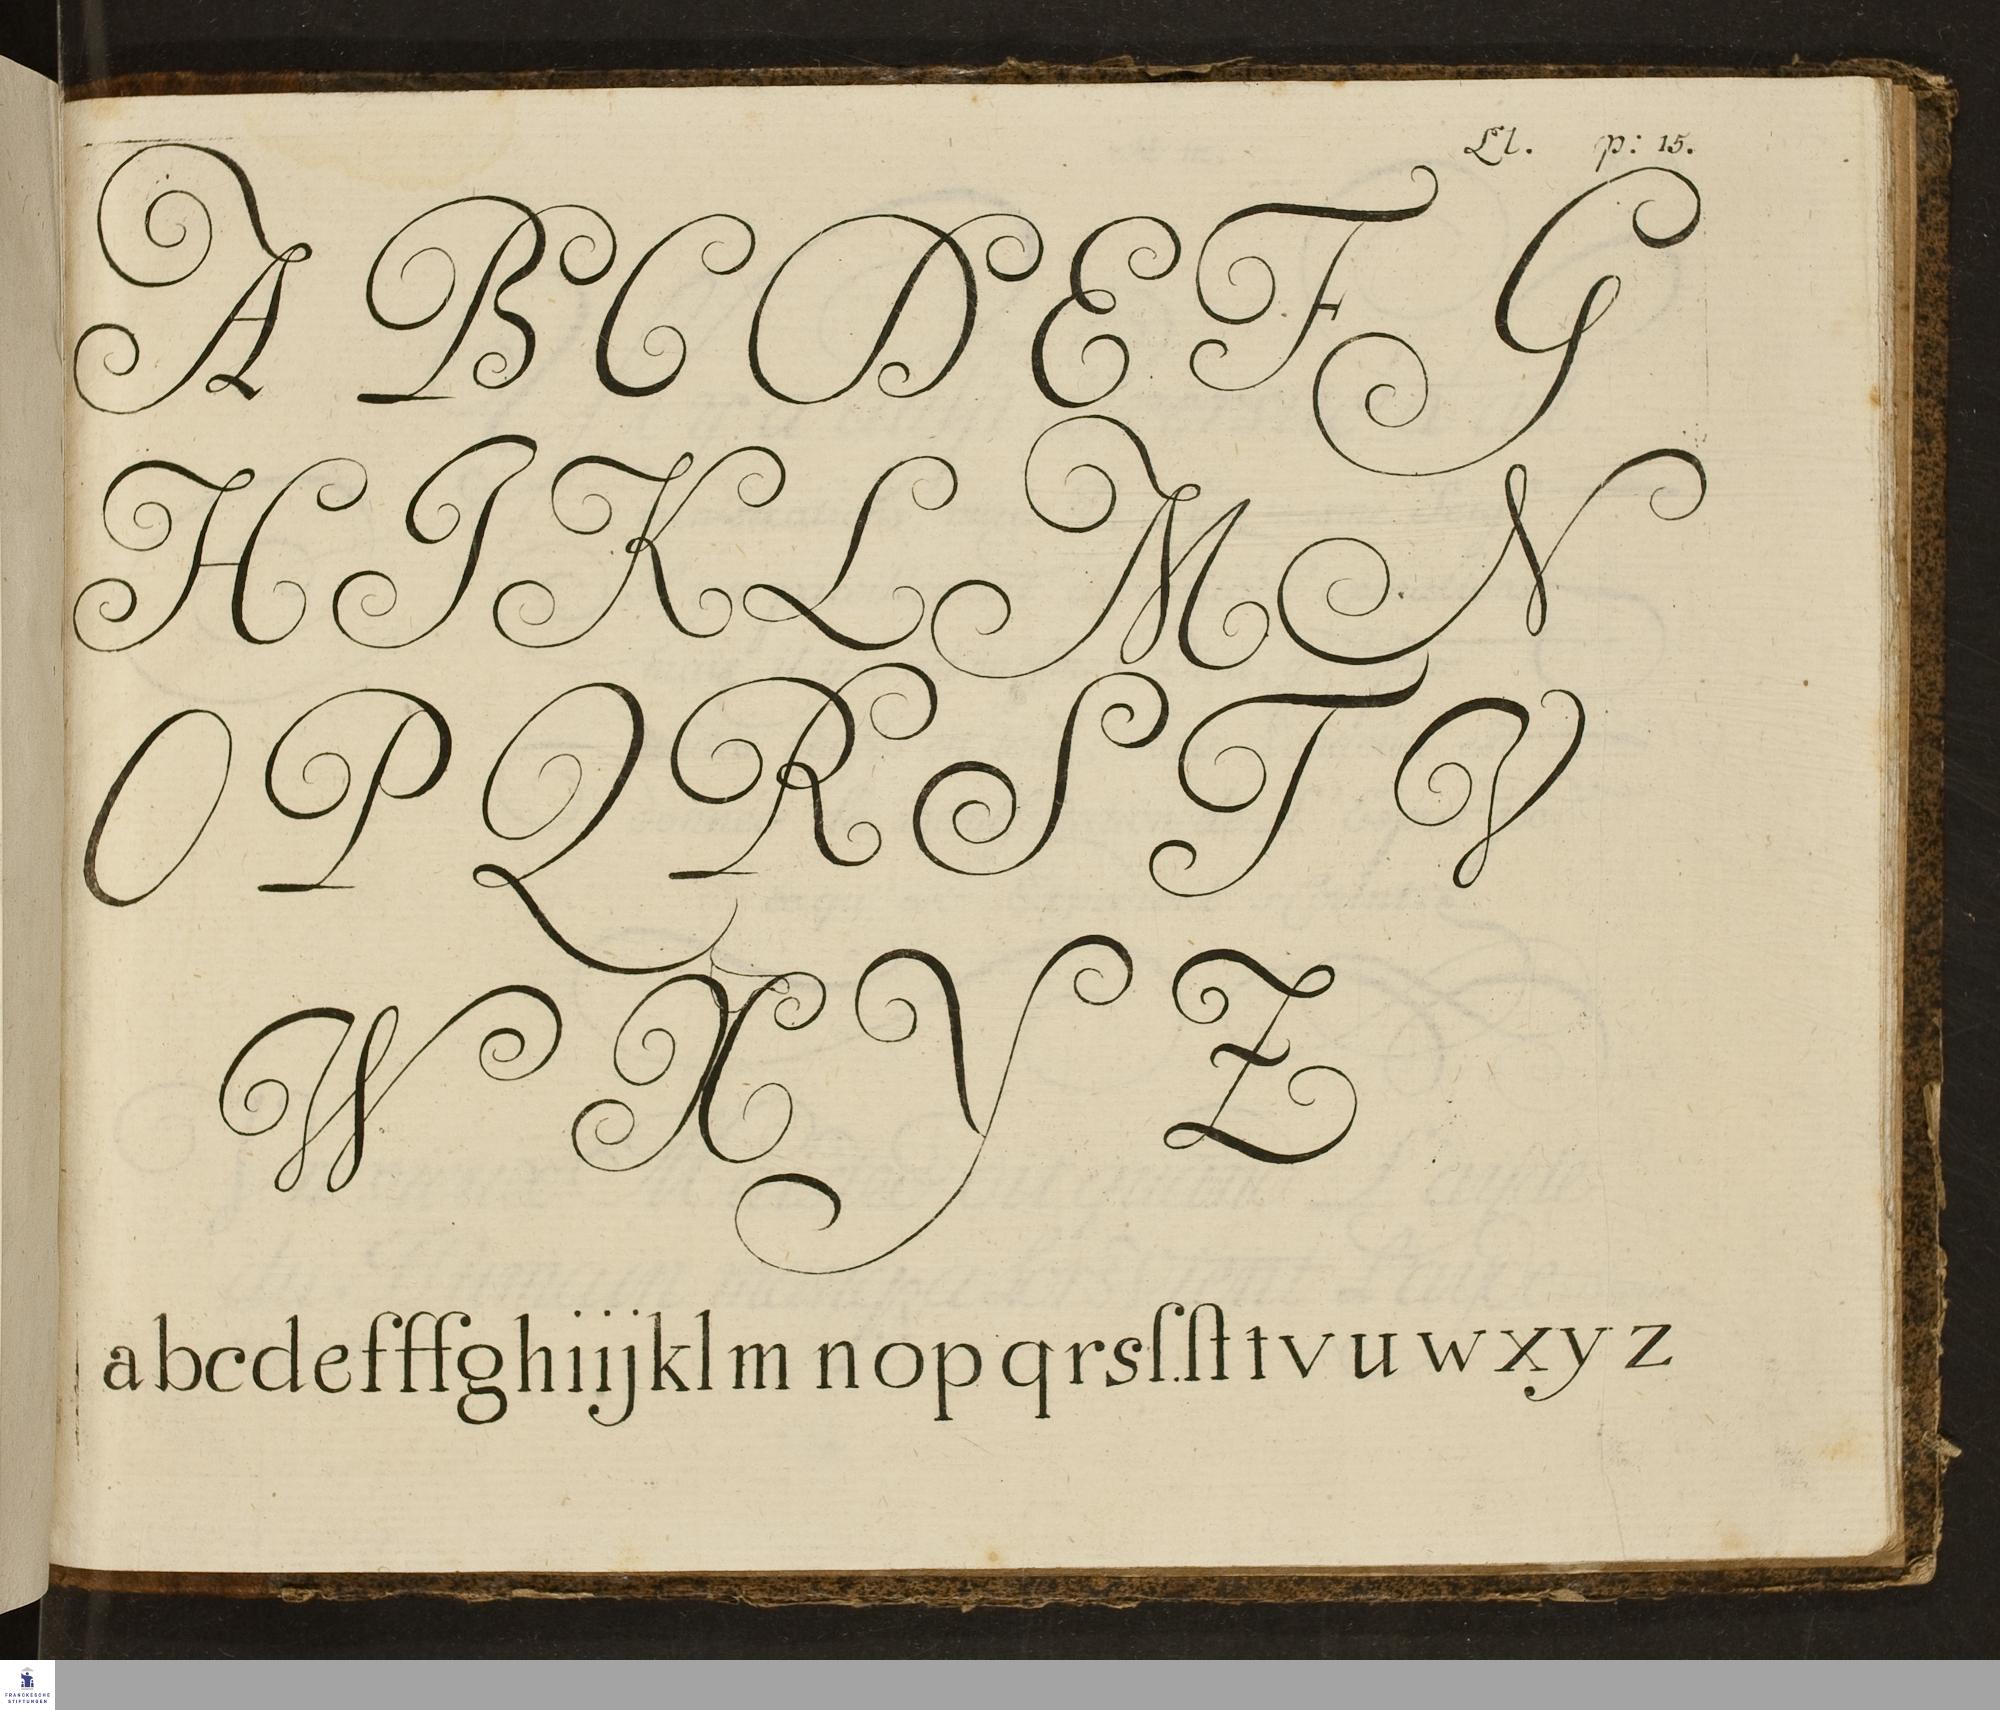 Lt. p: 15.
A B C D E F G
H I K L M N
O P Q R S T V
W X Y Z
a b c d e f ff g h i i j k l m n o p q r s ſ. ſt t v u w x y z
FRANCKESCHE
STIFTUNGEN